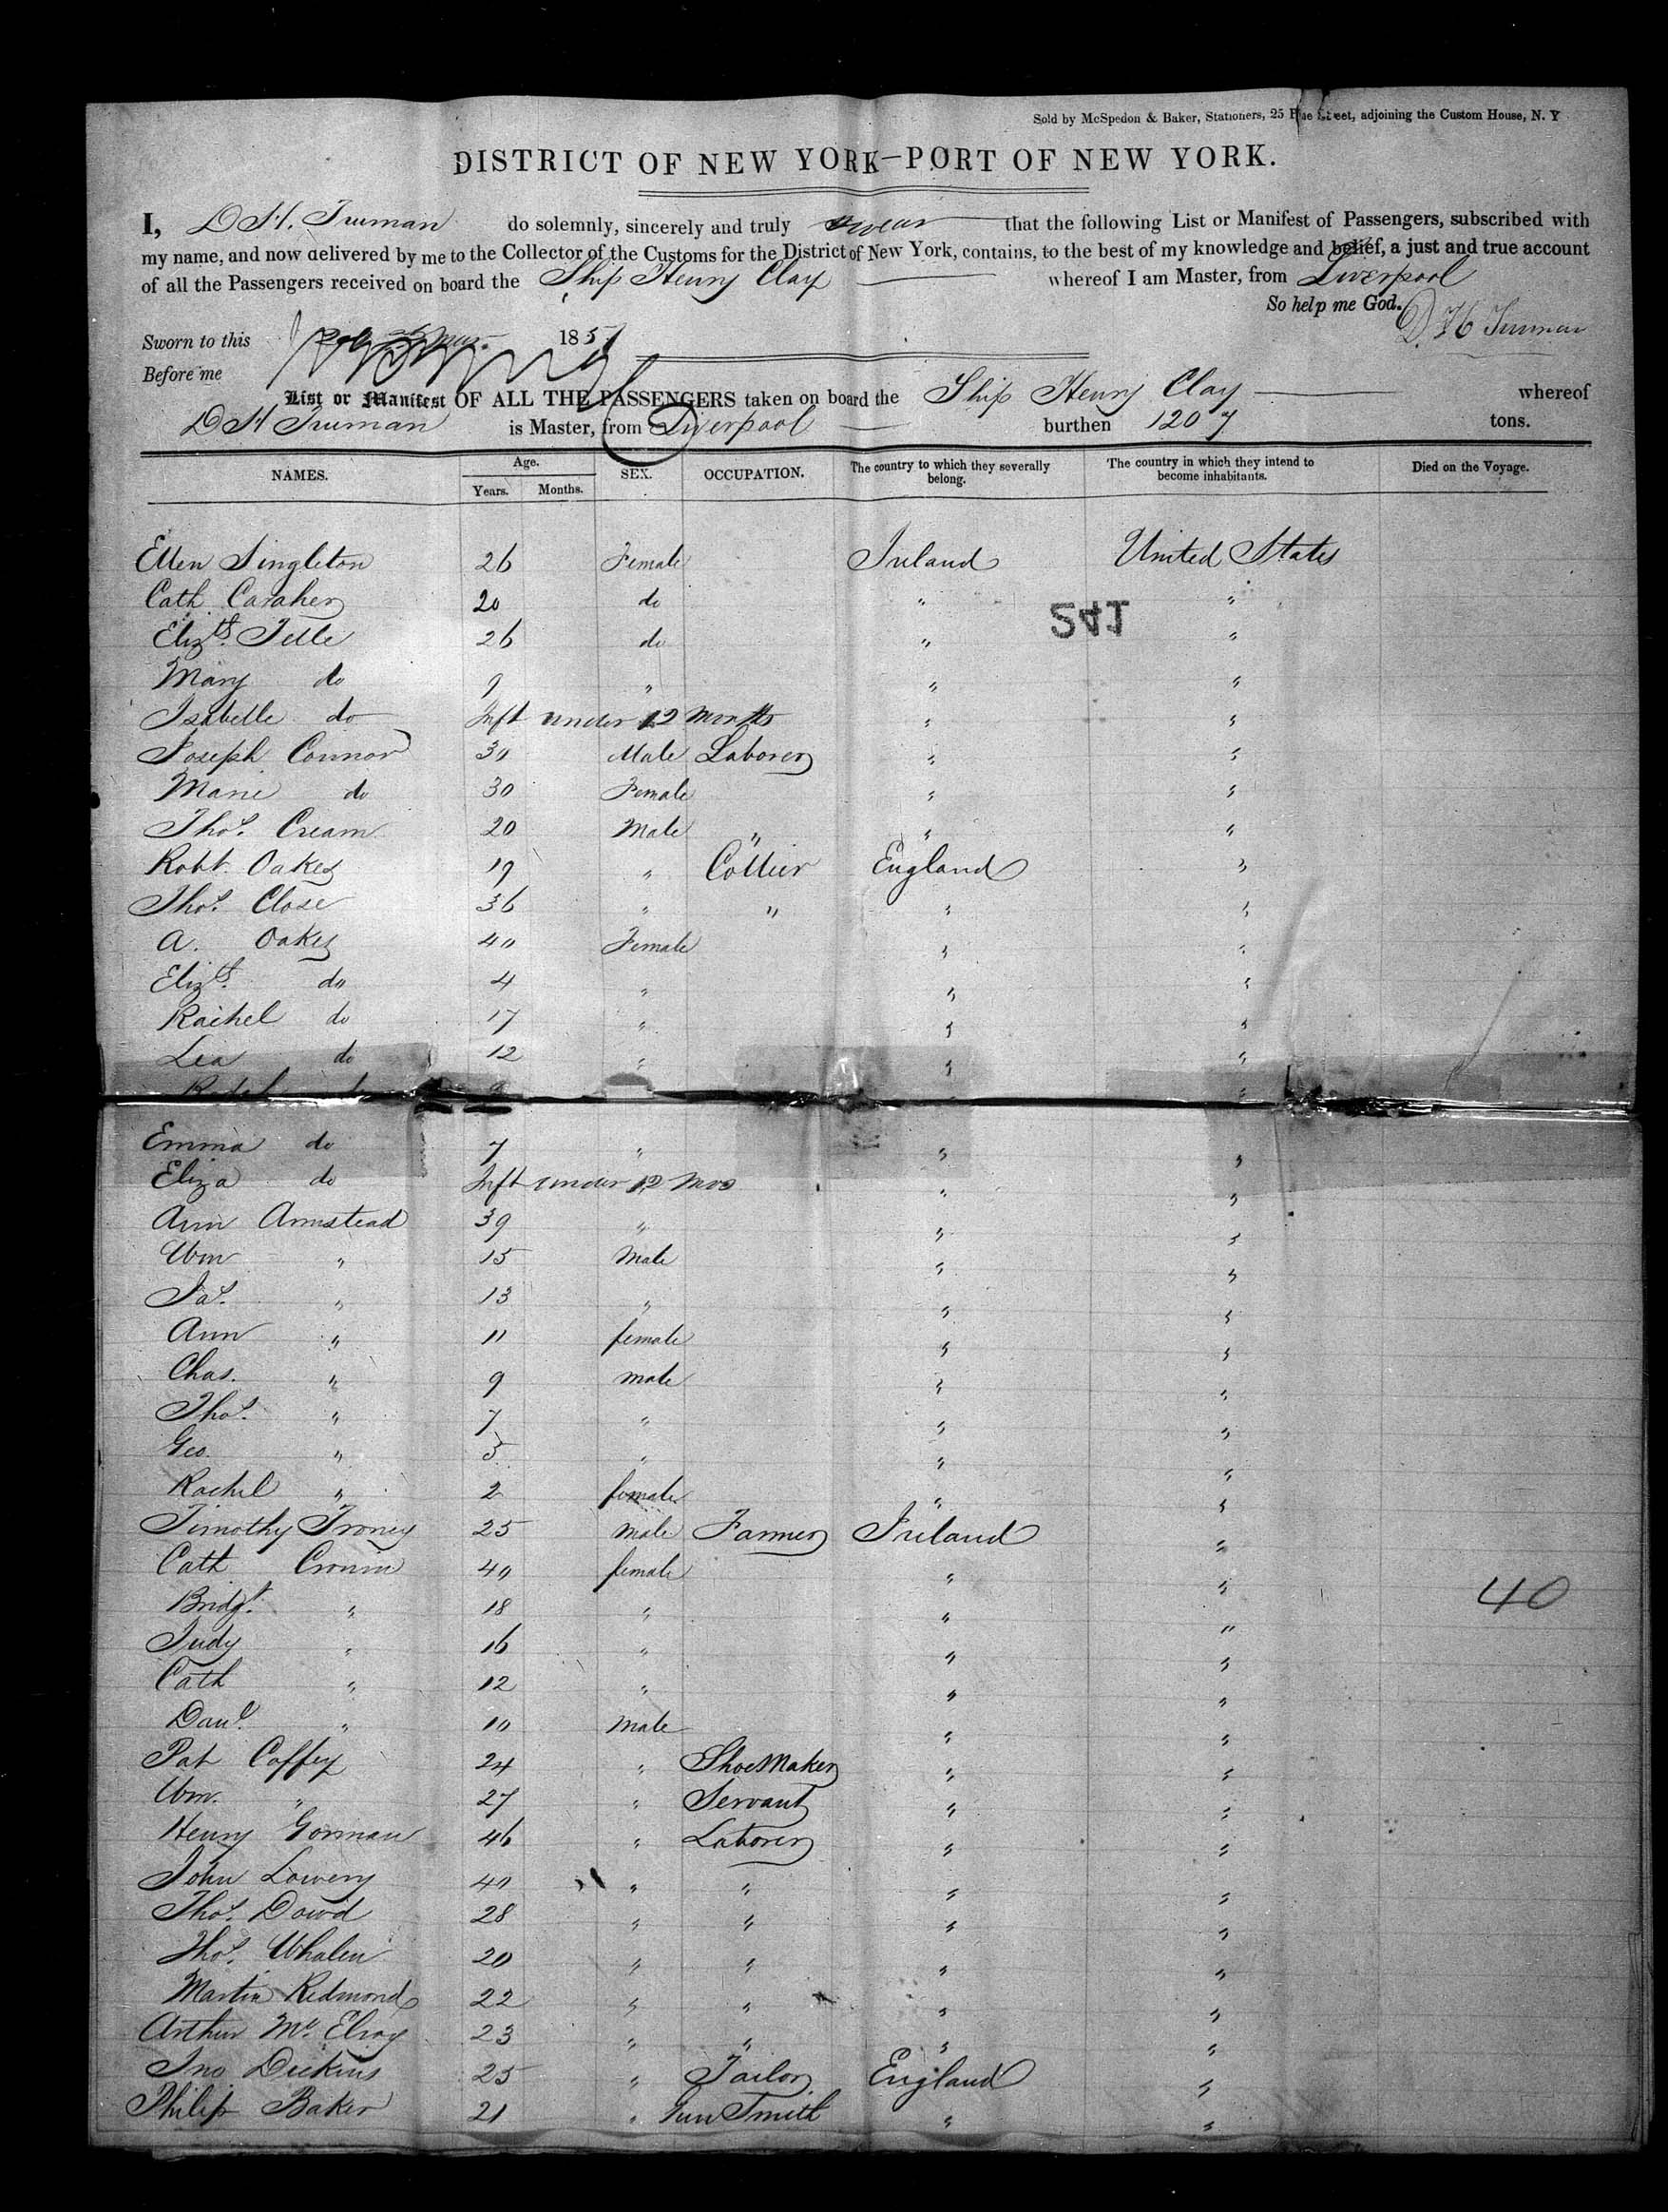 Sold by McSpedon & Baker, Stationers, 25 Pine Street, adjoining the Custom House, N. Y
DISTRICT OF NEW YORK—PORT OF NEW YORK.
I, D H. Truman do solemnly, sincerely and truly swear that the following List or Manifest of Passengers, subscribed with
my name, and now delivered by me to the Collector of the Customs for the District of New York, contains, to the best of my knowledge and belief, a just and true account
of all the Passengers received on board the Ship Henry Clay whereof I am Master, from Liverpool
So help me God. D. H Truman
Sworn to this 1851
Before me
List or Manifest OF ALL THE PASSENGERS taken on board the Ship Henry Clay whereof
D H Truman is Master, from Liverpool burthen 1207 tons.
NAMES. Age. Years. Months. SEX. OCCUPATION. The country to which they severally belong. The country in which they intend to become inhabitants. Died on the Voyage.
Ellen Singleton 26 Female Ireland United States
Cath Caraher 20 do " "
241
Elizth. Telle 26 do " "
Mary do 9 " " "
Isabelle do Inft under 12 Months " "
Joseph Connor 30 Male Laborer " "
Marie do 30 Female " "
Thos. Cream 20 Male " " "
Robt. Oakes 19 " Collier England "
Thos. Close 36 " " " "
A. Oakes 40 Female " "
Elizth. do 4 " " "
Rachel do 17 " " "
Lea do 12 " " "
do 9 "
Emma do 7 " " "
Eliza do Inft under 12 Mos " "
Ann Armstead 39 " " "
Wm " 15 Male " "
Jas. " 13 " " "
Ann " 11 female " "
Chas. " 9 male " "
Thos. " 7 " " "
Geo. " 5 " " "
Rachel " 2 female " "
Timothy Troney 25 male Farmer Ireland "
Cath Cronin 40 female " "
40
Bridgt. " 18 " " "
Judy " 16 " " "
Cath " 12 " " "
Danl. " 10 Male " "
Pat Coffey 24 " Shoemaker " "
Wm. " 27 " Servant " "
Henry Gorman 46 " Laborer " "
John Lowery 40 " " " "
Thos. Dowd 28 " " " "
Thos. Whalen 20 " " " "
Martin Redmond 22 " " " "
Arthur Mc. Elroy 23 " " " "
Jno Dickins 25 " Tailor England "
Philip Baker 21 " Gun Smith " "